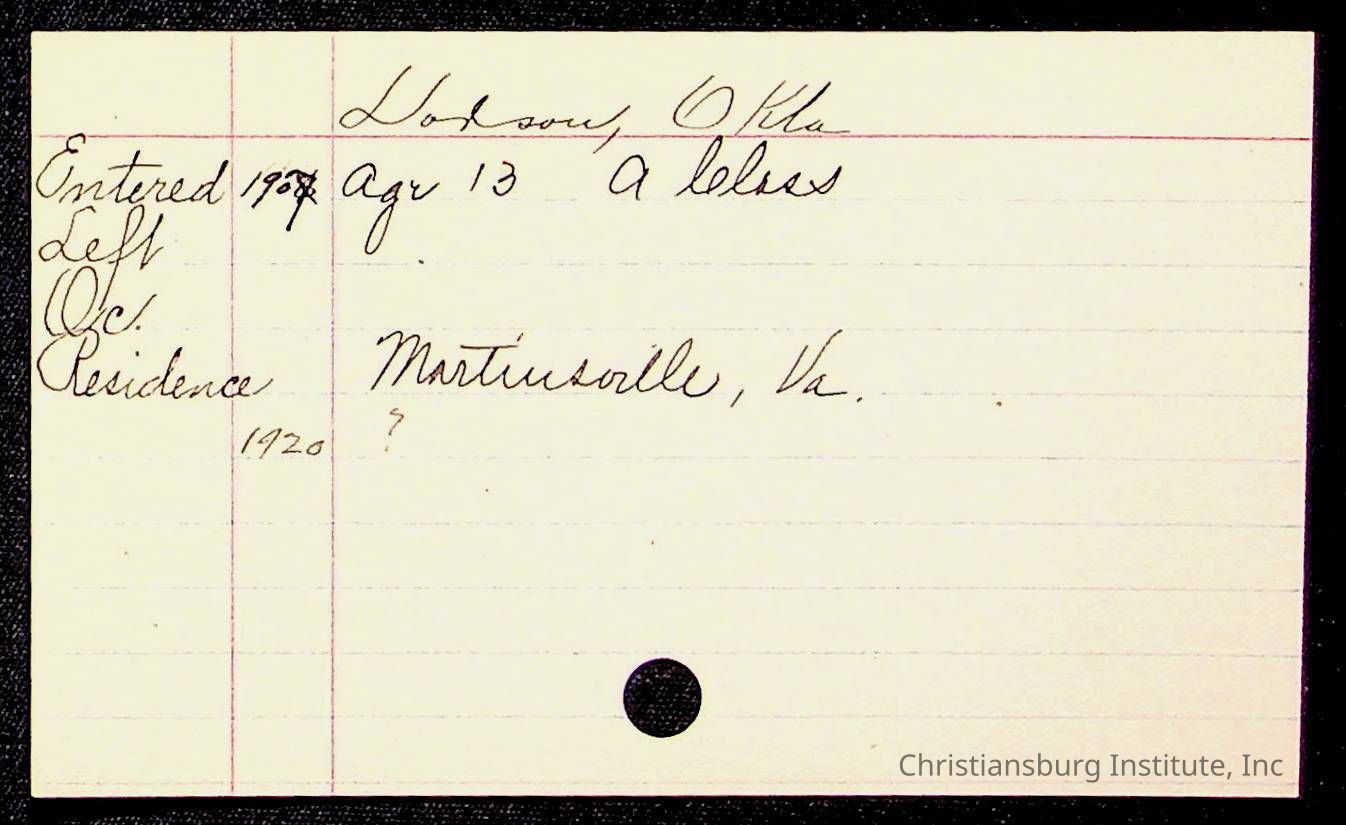 Dodson, Okla
Entered Age 13 A Class
Left
Oc.
Residence Martinsville, Va.
1920 ?
Christiansburg Institute, Inc